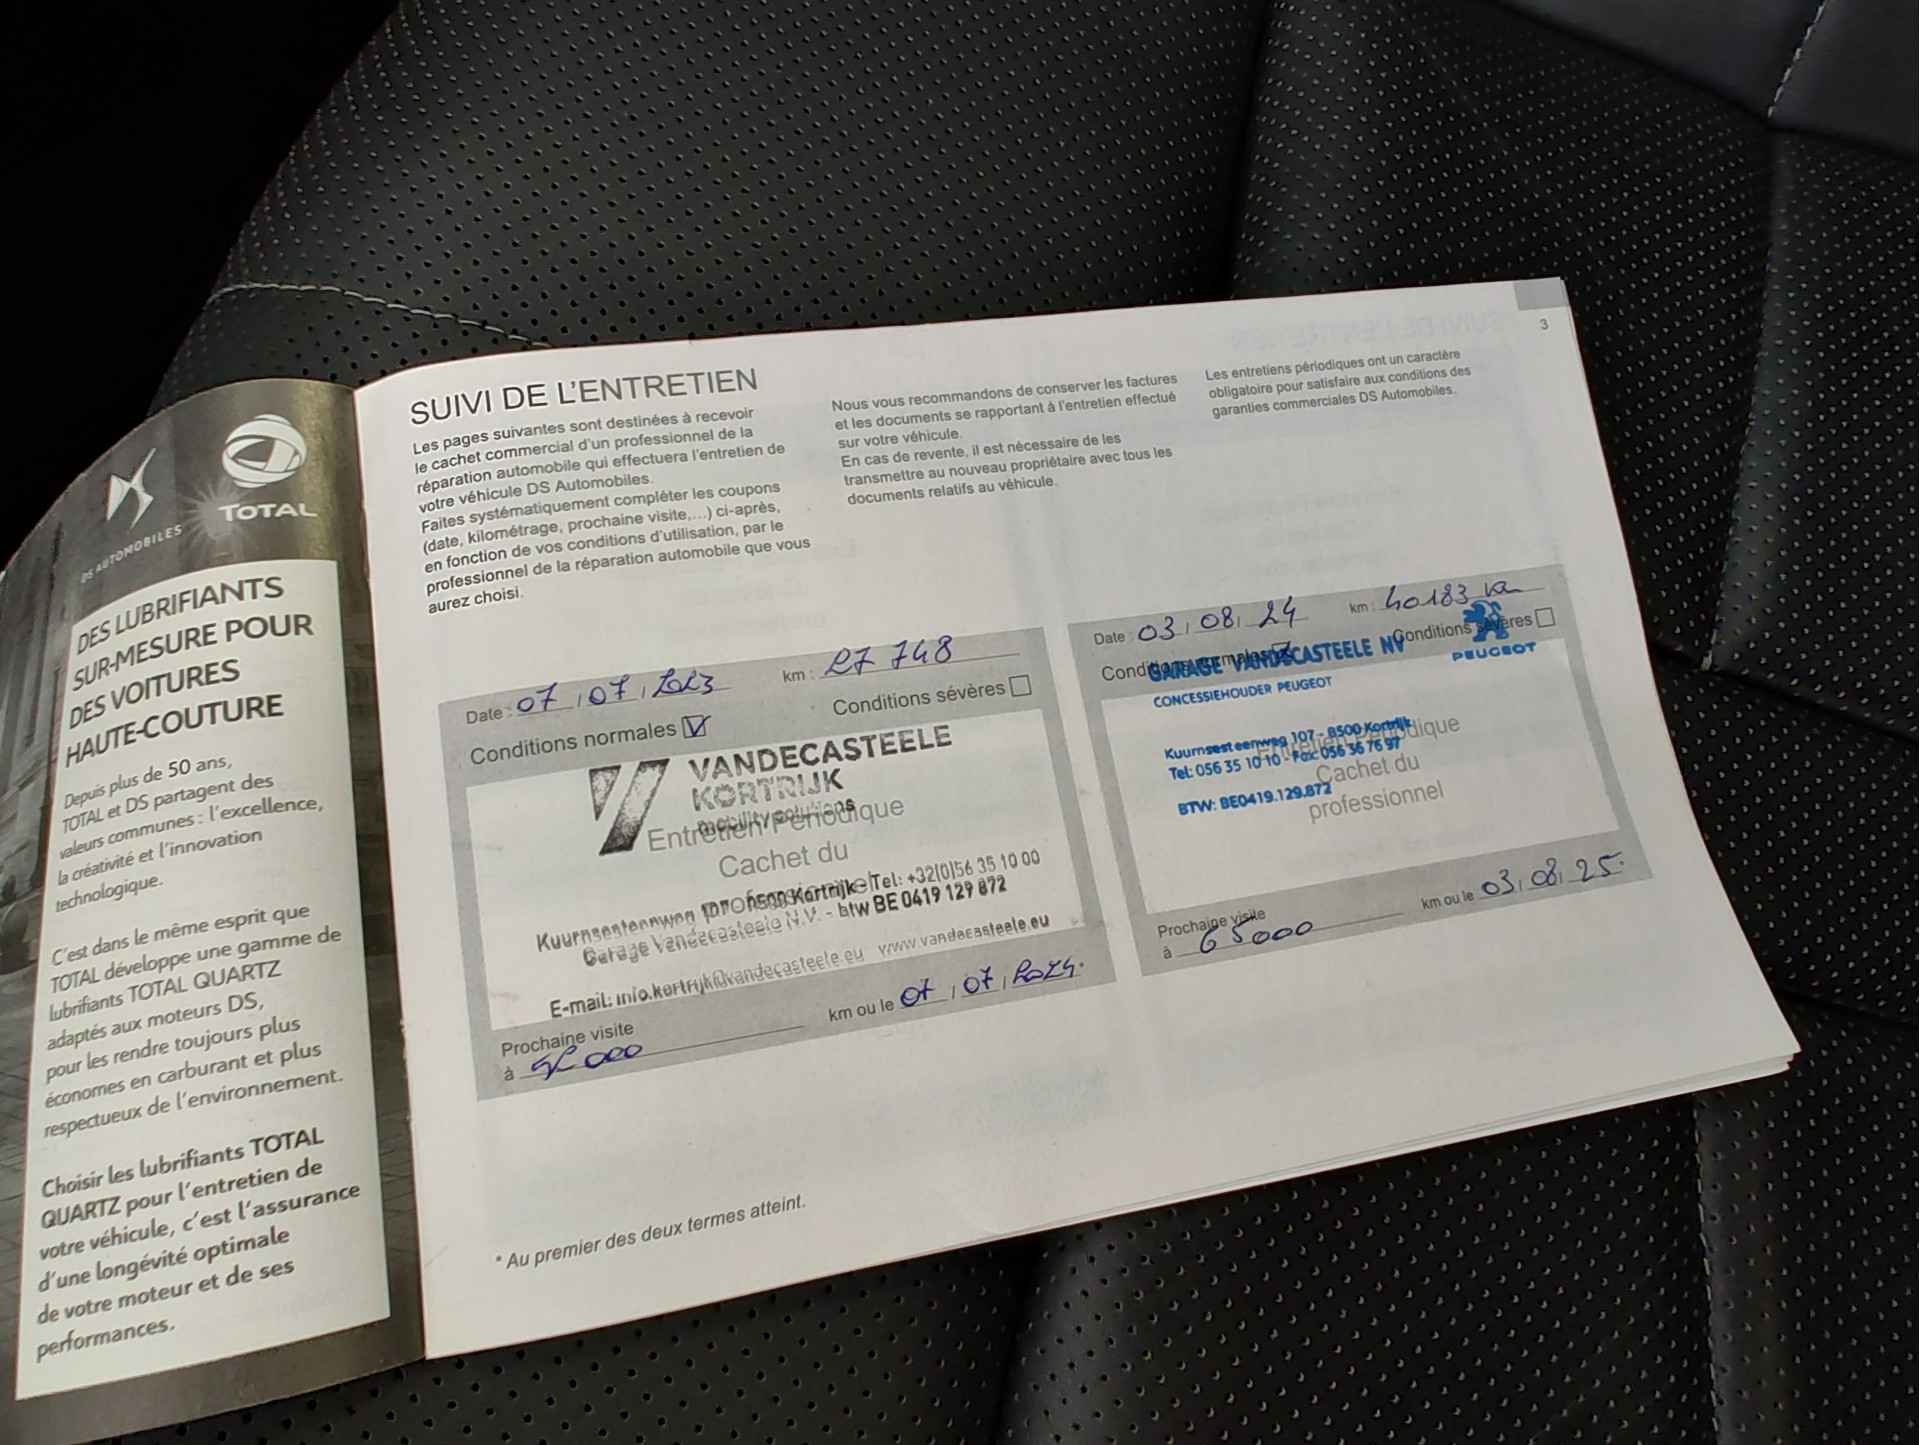 DS AUTOMOBILES
TOTAL
DES LUBRIFIANTS
SUR-MESURE POUR
DES VOITURES
HAUTE-COUTURE
Depuis plus de 50 ans,
TOTAL et DS partagent des
valeurs communes : l'excellence,
la créativité et l'innovation
technologique.
C'est dans le même esprit que
TOTAL développe une gamme de
lubrifiants TOTAL QUARTZ
adaptés aux moteurs DS,
pour les rendre toujours plus
économes en carburant et plus
respectueux de l'environnement.
Choisir les lubrifiants TOTAL
QUARTZ pour l'entretien de
votre véhicule, c'est l'assurance
d'une longévité optimale
de votre moteur et de ses
performances.
3
SUIVI DE L'ENTRETIEN
Les pages suivantes sont destinées à recevoir
le cachet commercial d'un professionnel de la
réparation automobile qui effectuera l'entretien de
votre véhicule DS Automobiles.
Faites systématiquement compléter les coupons
(date, kilométrage, prochaine visite,...) ci-après,
en fonction de vos conditions d'utilisation, par le
professionnel de la réparation automobile que vous
aurez choisi.
Nous vous recommandons de conserver les factures
et les documents se rapportant à l'entretien effectué
sur votre véhicule.
En cas de revente, il est nécessaire de les
transmettre au nouveau propriétaire avec tous les
documents relatifs au véhicule.
Les entretiens périodiques ont un caractère
obligatoire pour satisfaire aux conditions des
garanties commerciales DS Automobiles.
Date : 07 / 07 / 2023 km : 27 748
Conditions normales Conditions sévères
VANDECASTEELE
KORTRIJK
mobility solutions
Entretien Périodique
Cachet du
professionnel
Kuurnsesteenweg 107 - 8500 Kortrijk - Tel: +32(0)56 35 10 00
Garage Vandecasteele N.V. - btw BE 0419 129 872
E-mail: info.kortrijk@vandecasteele.eu www.vandecasteele.eu
Prochaine visite
à 000 km ou le 07 / 07 / 2024.
Date : 03 / 08 / 24 km : 40183 km
Conditions normales Conditions sévères
GARAGE VANDECASTEELE NV
PEUGEOT
CONCESSIEHOUDER PEUGEOT
Kuurnsesteenweg 107 - 8500 Kortrijk
Tel: 056 35 10 10 - Fax: 056 36 76 97
BTW: BE0419.129.872
Entretien Périodique
Cachet du
professionnel
Prochaine visite
à 65000 km ou le 03 / 08 / 25.
* Au premier des deux termes atteint.